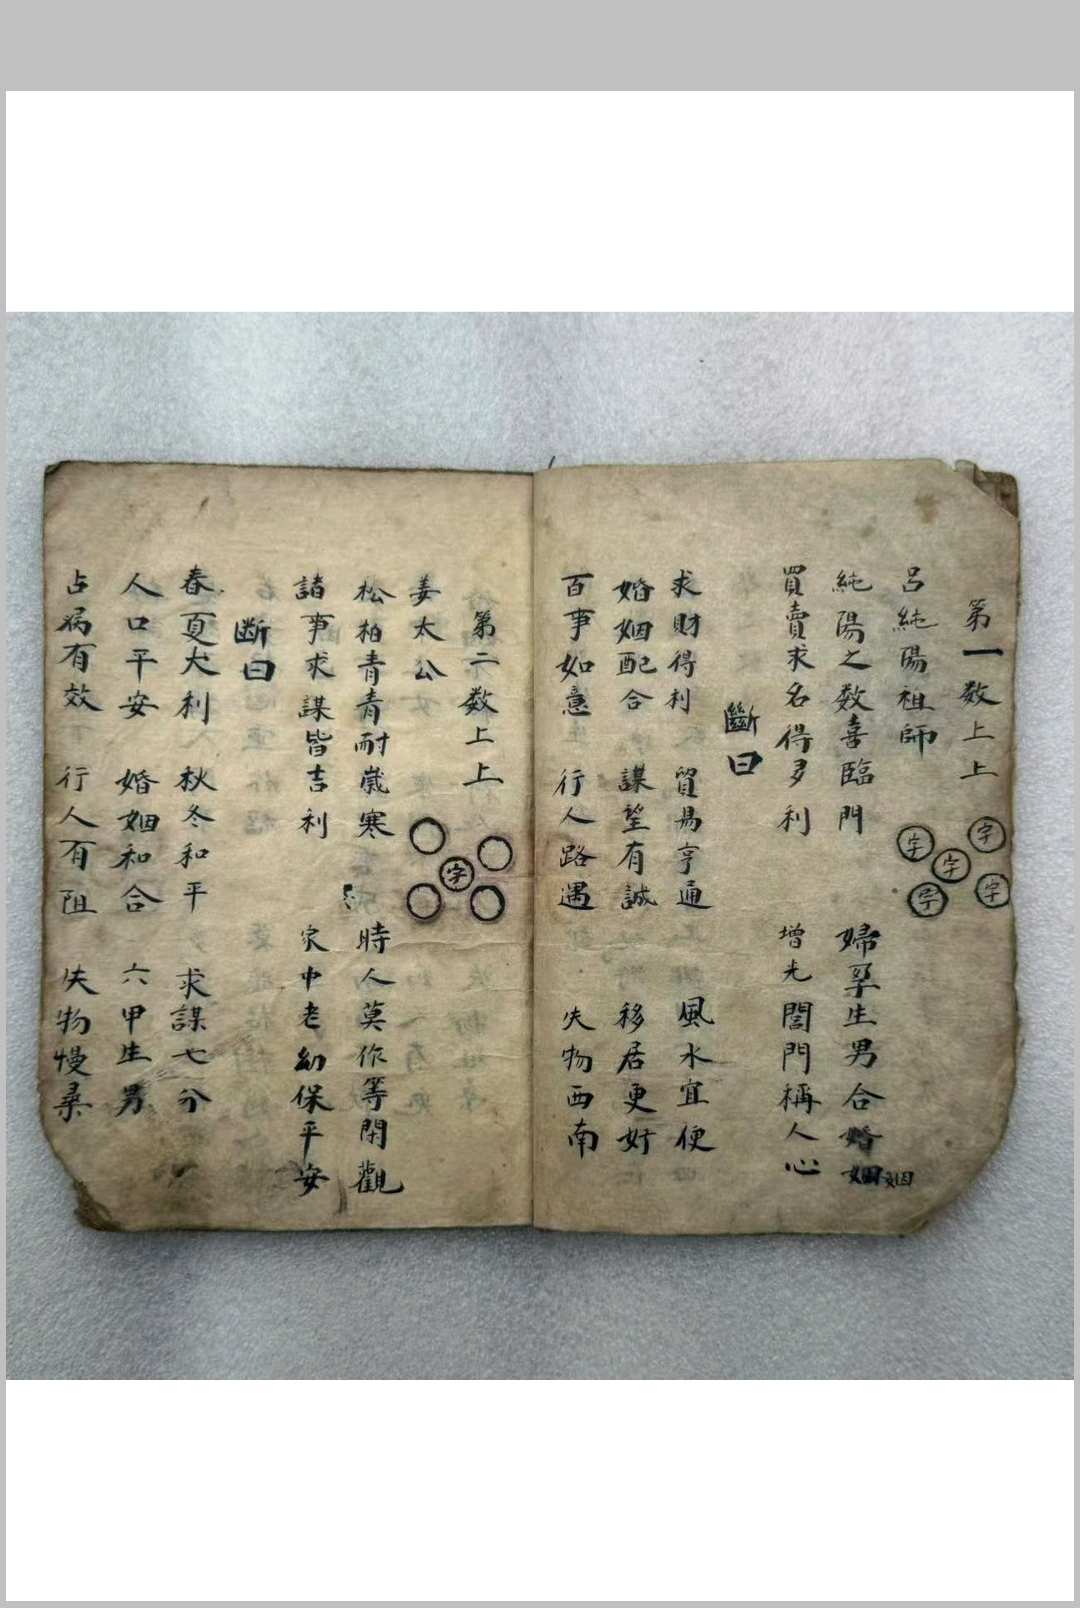 第一數上上
字
字
字
字
字
呂純陽祖師
純陽之數喜臨門 婦孕生男合婚姻姻
買賣求名得多利 增光閭門稱人心
斷曰
求財得利 貿易亨通 風水宜便
婚姻配合 謀望有誠 移居更好
百事如意 行人路遇 失物西南
第二數上上
字
姜太公
松柏青青耐歲寒 時人莫作等閑觀
諸事求謀皆吉利 家中老幼保平安
斷曰
春夏大利 秋冬和平 求謀七分
人口平安 婚姻和合 六甲生男
占病有效 行人有阻 失物慢尋